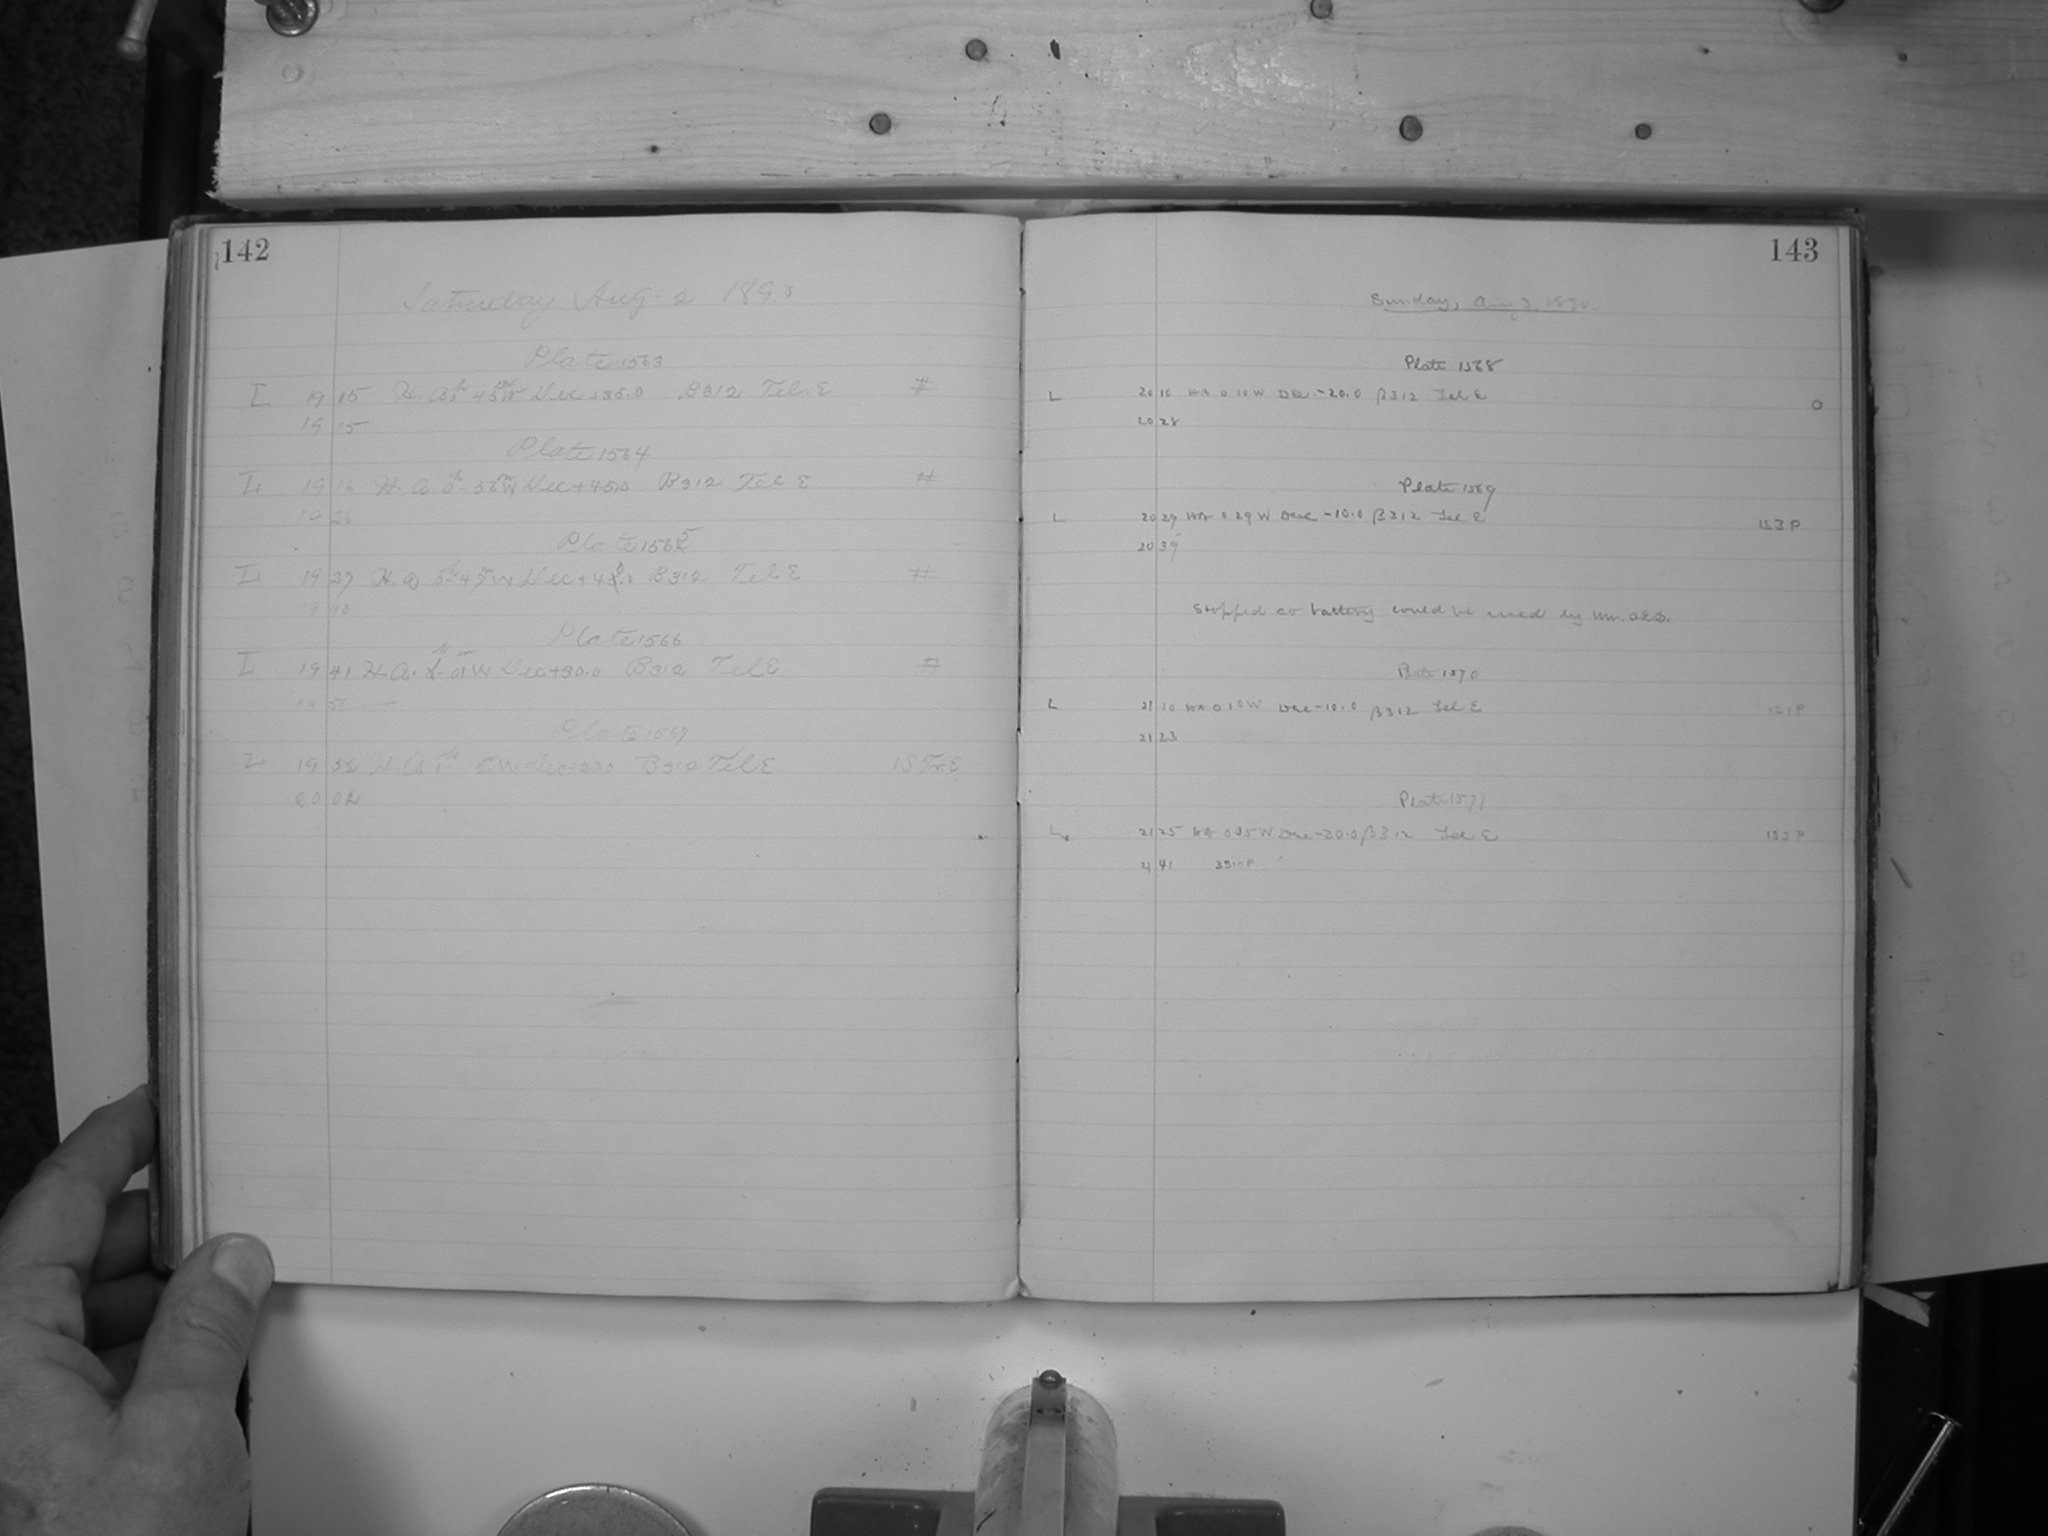 142
Saturday Aug 2 1890
Plate 1563
L 19 15 H. A. 0h 45m W Dec +35.0 B312 Tel. E #
19 15
Plate 1564
L 19 16 H. A. 0h 56m W Dec +45.0 B312 Tel E #
19 26
Plate 1565
L 19 27 H. A. 0h 47 W Dec B312 Tel E #
19 40
Plate 1566
L 19 41 H. A. 1h 01m W Dec +30.0 B312 Tel E #
19 51
Plate 1567
L 19 52 H. A. 1h Dec B312 Tel E
20 02
143
Sunday, Aug 3, 1890.
Plate 1568
L 20 10 HA 0 10 W Dec -20.0 β312 Tel E 0
20 28
Plate 1569
L 20 29 HA 0 29 W Dec -10.0 β312 Tel E 153 P
20 39
Stopped so battery could be used by
Plate 1570
L 21 10 HA 0 10 W Dec -10.0 β312 Tel E 151 P
21 23
Plate 1571
L 21 25 HA 0 25 W Dec -20.0 β312 Tel E 153 P
21 41